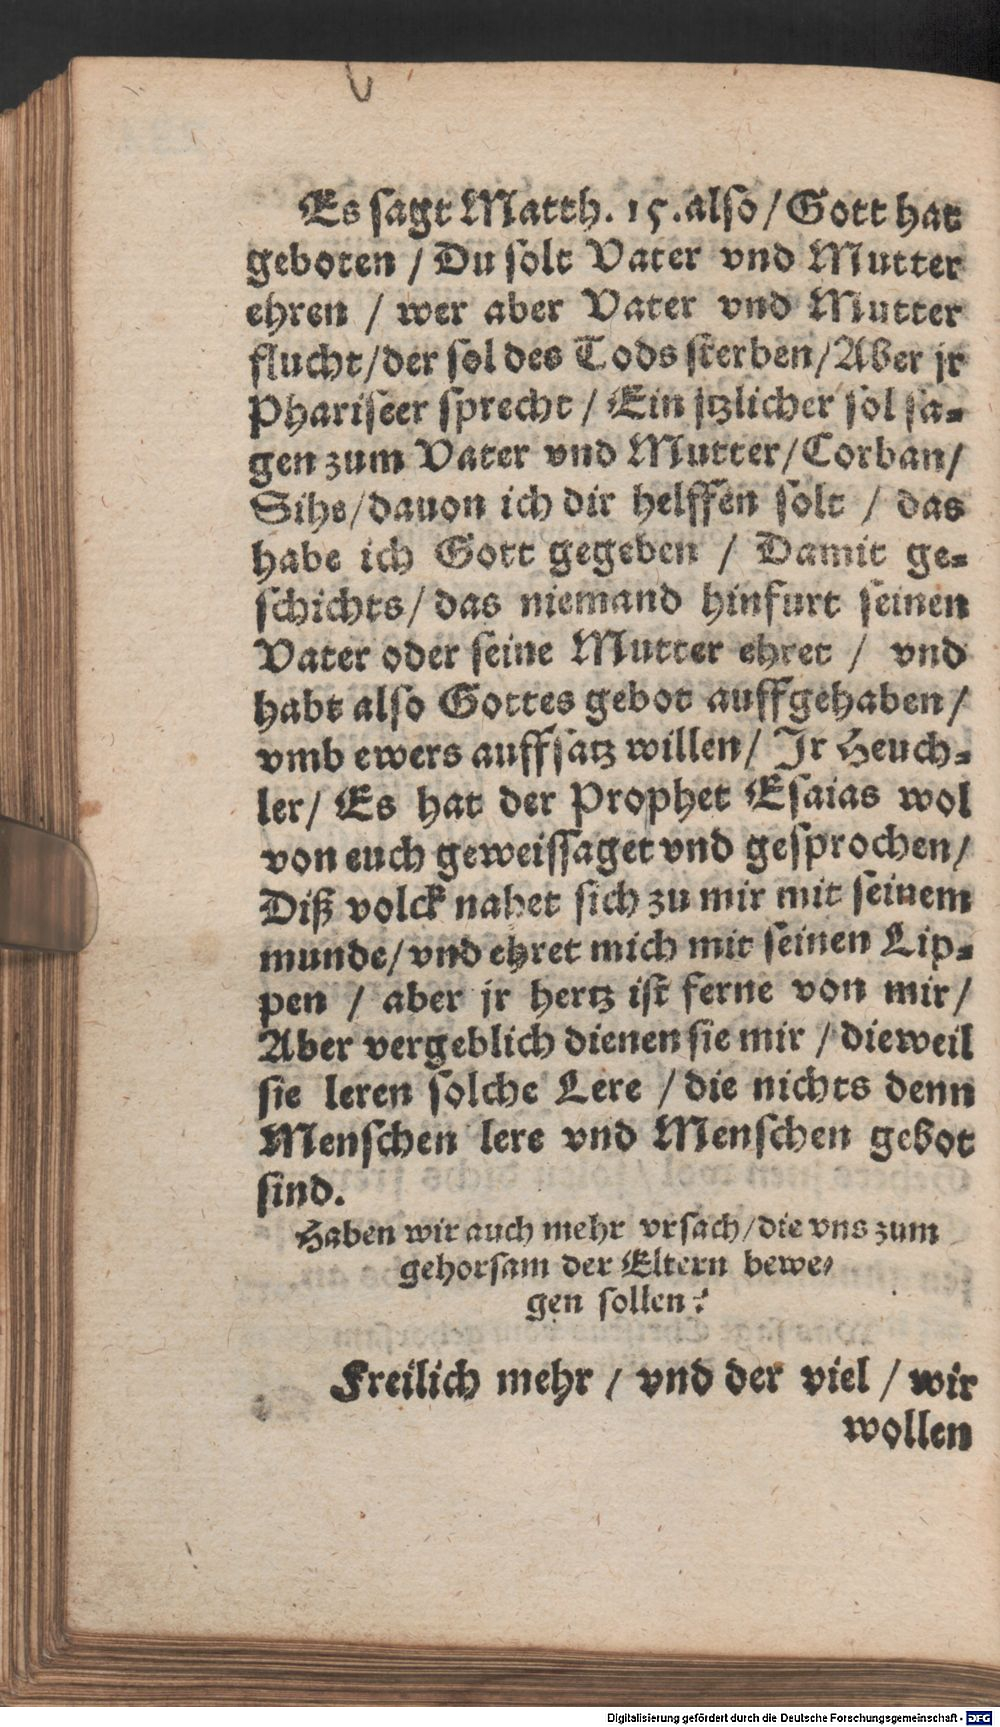 Es ſagt Matth. 15. alſo / Gott hat
geboten / Du ſolt Vater vnd Mutter
ehren / wer aber Vater vnd Mutter
flucht / der ſol des Tods ſterben / Aber jr
Phariſeer ſprecht / Ein jtzlicher ſol ſa⸗
gen zum Vater vnd Mutter / Corban /
Sihe / dauon ich dir helffen ſolt / das
habe ich Gott gegeben / Damit ge⸗
ſchichts / das niemand hinfurt ſeinen
Vater oder ſeine Mutter ehret / vnd
habt alſo Gottes gebot auffgehaben /
vmb ewers auffſatz willen / Jr Heuch⸗
ler / Es hat der Prophet Eſaias wol
von euch geweiſſaget vnd geſprochen /
Diß volck nahet ſich zu mir mit ſeinem
munde / vnd ehret mich mit ſeinen Lip⸗
pen / aber jr hertz iſt ferne von mir /
Aber vergeblich dienen ſie mir / dieweil
ſie leren ſolche Lere / die nichts denn
Menſchen lere vnd Menſchen gebot
ſind.
Haben wir auch mehr vrſach / die vns zum
gehorſam der Eltern bewe⸗
gen ſollen?
Freilich mehr / vnd der viel / wir
wollen
Digitalisierung gefördert durch die Deutsche Forschungsgemeinschaft - DFG